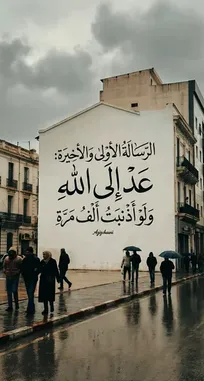 الرَّسَالَةُ الأولى والأَخِيرَة:
عُدْ إِلَى اللهِ
وَلَوْ أَذْنَبْتَ أَلْفَ مَرَّة